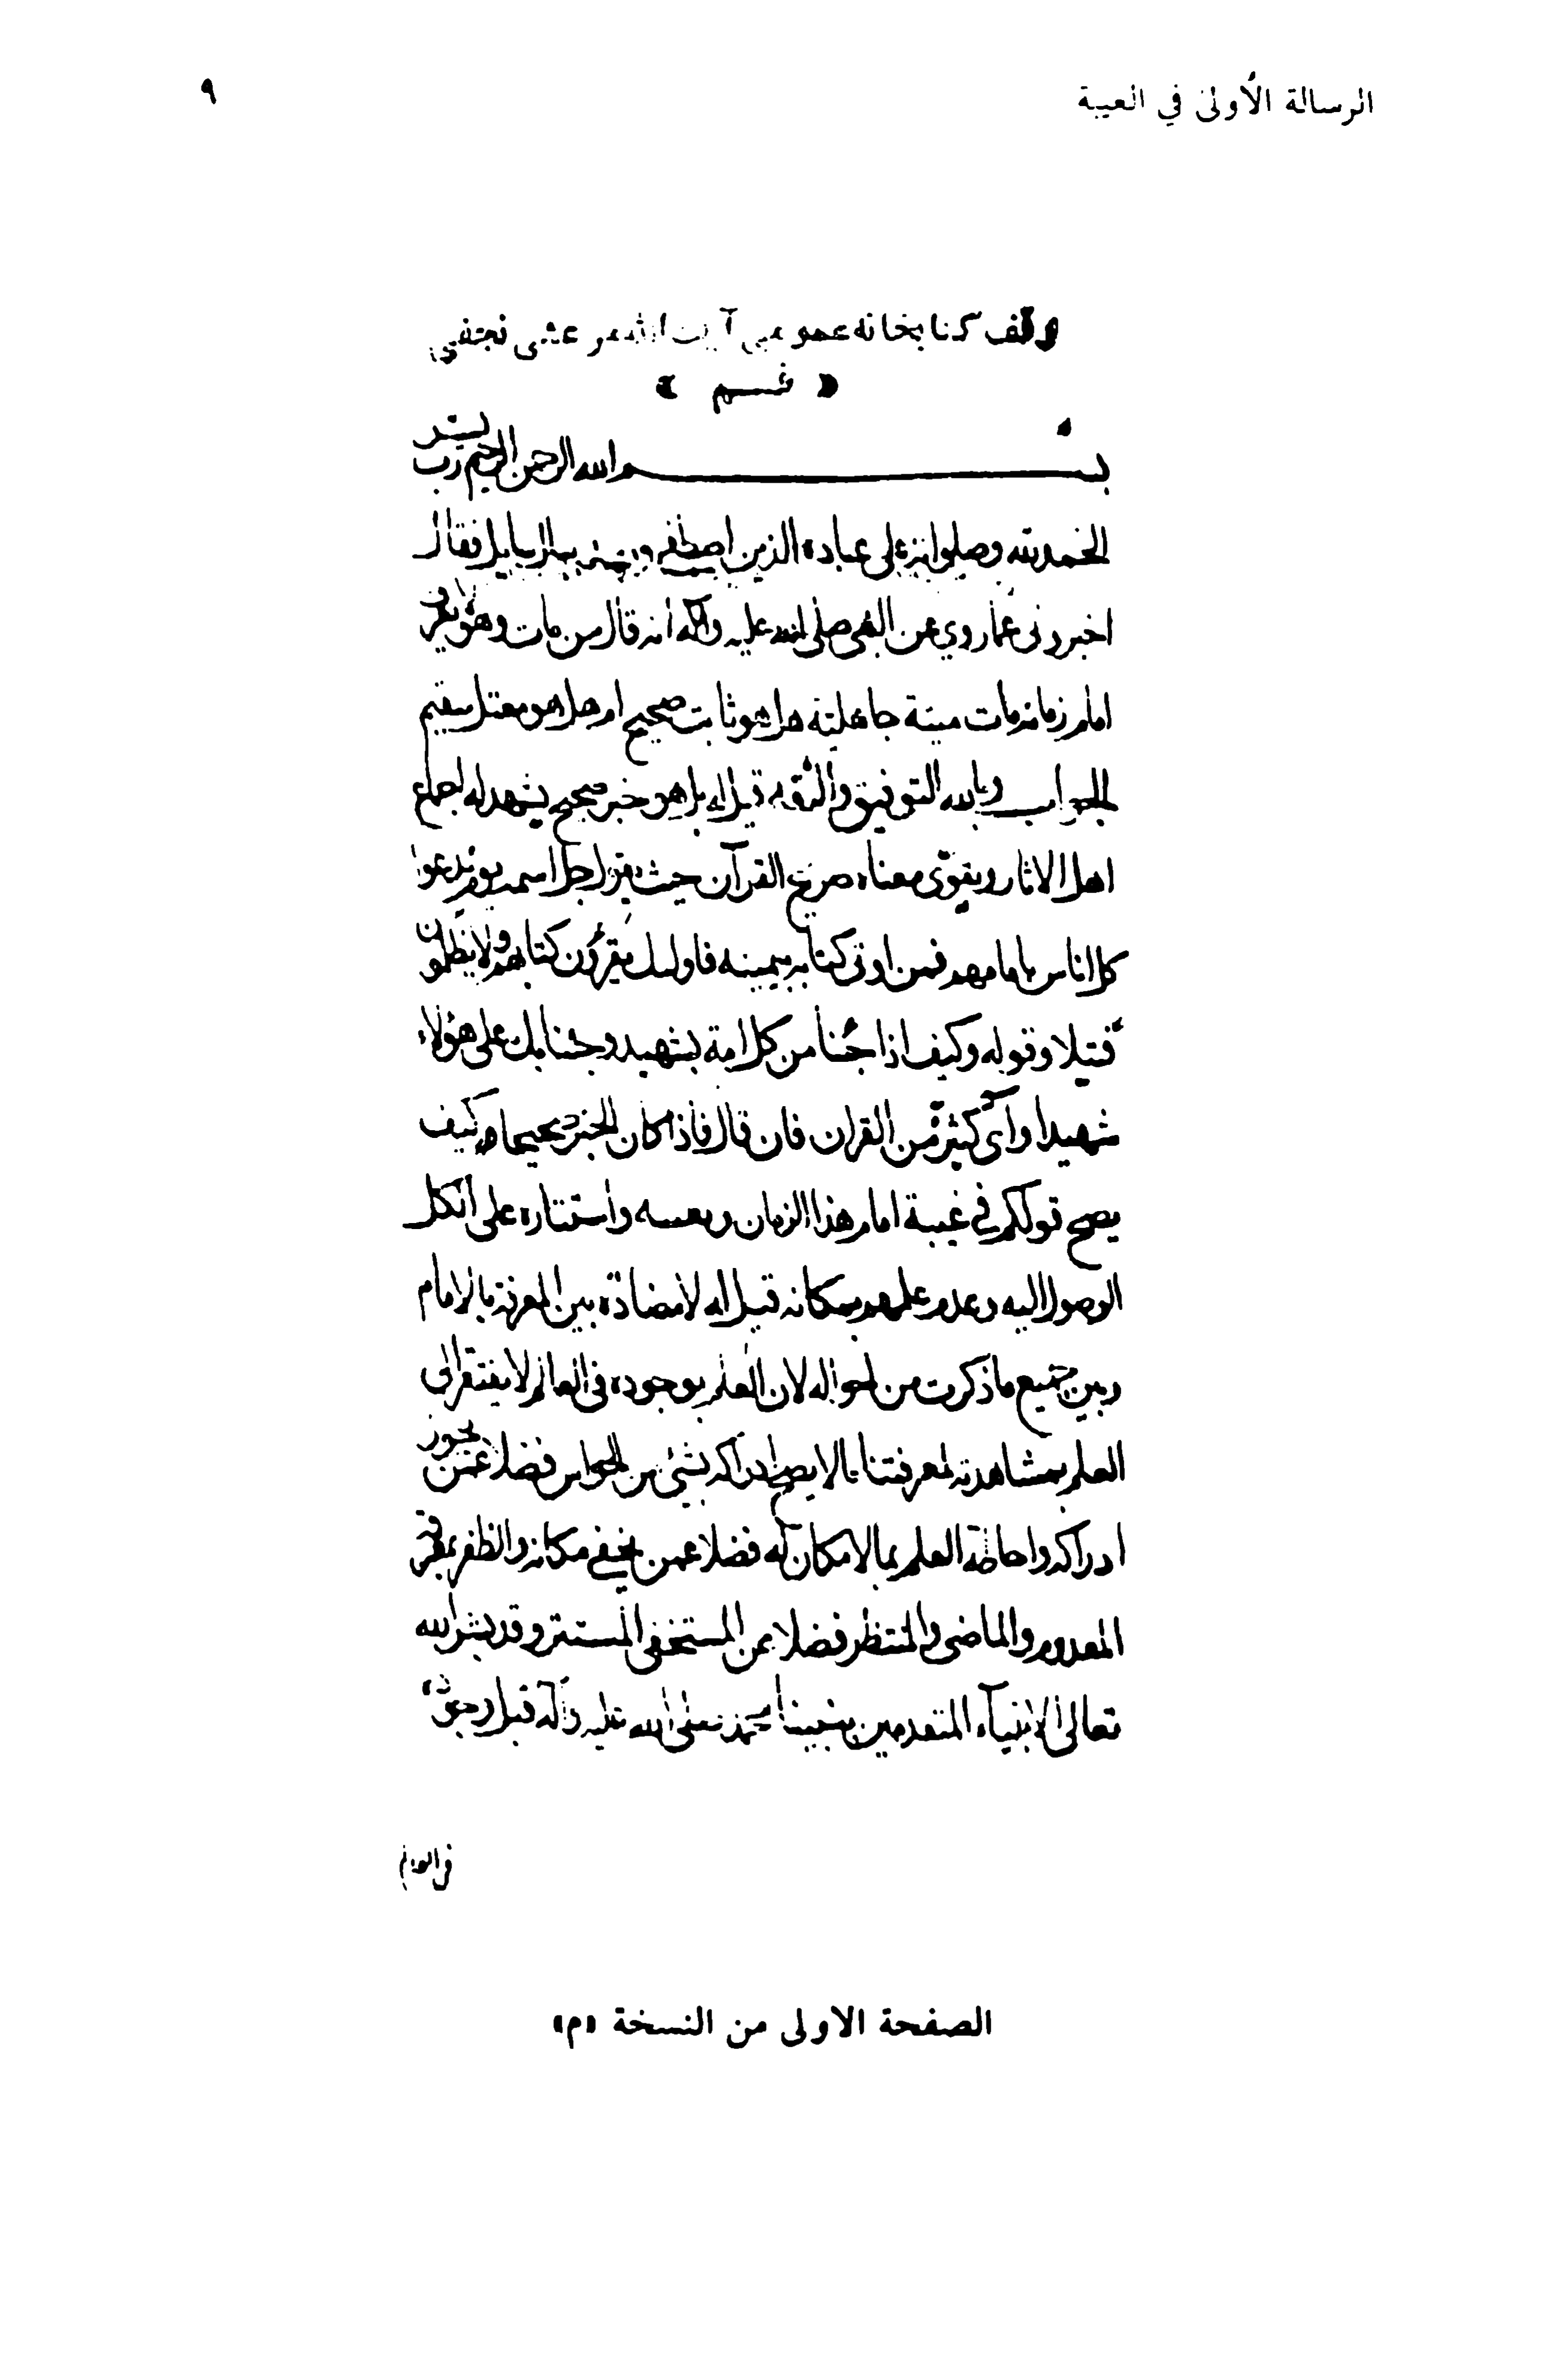 الرسالة الأولى في الغيبة
٩
وقف كتابخانه عمومى آيت الله مرعشى نجفى
« قم »
بسم الله الرحمن الرحيم رب يسر
الحمد لله وصلواته على عباده الذين اصطفى سايل فقال
اخبرونى عما روي عن النبي صلى الله عليه وآله انه قال من مات وهو لا يعرف
امام زمانه مات ميتة جاهلية هل هو ثابت صحيح ام هل هو معتل سقيم
الجواب وبالله التوفيق والثقة قيل له بل هو خبر صحيح يشهد له اجماع
اهل الاثار ويقوى معناه صريح القرآن حيث يقول جل اسمه يوم ندعوا
كل اناس بامامهم فمن اوتى كتابه بيمينه فاولئك يقرؤن كتابهم ولا يظلمون
فتيلا وقوله وكيف اذا جئنا من كل امة بشهيد وجئنا بك على هؤلاء
شهيدا وآى كثيرة من القران فان قال فاذا كان الخبر صحيحا كيف
يصح قولكم في غيبة امام هذا الزمان وتغيبه واستتاره على الكل
الوصول اليه وعدم علمهم بمكانه قيل له لا مضادة بين المعرفة بالامام
وبين جميع ما ذكرت من احواله لان العلم بوجوده فى العالم لا يفتقر الى
العلم بمشاهدته لمعرفتنا ما لا يصح ادراكه بشئ من الحواس فضلا عمن يجوز
ادراكه واحاطة العلم بما لا مكان له فضلا عمن يخفى مكانه والظفر بمعرفة
المعدوم والماضى والمنتظر فضلا عن المستخفى المستتر وقد بشر الله
تعالى الانبياء المتقدمين بنبينا محمد صلى الله عليه وآله قبل وجوده
فى العالم
الصفحة الاولى من النسخة «م»